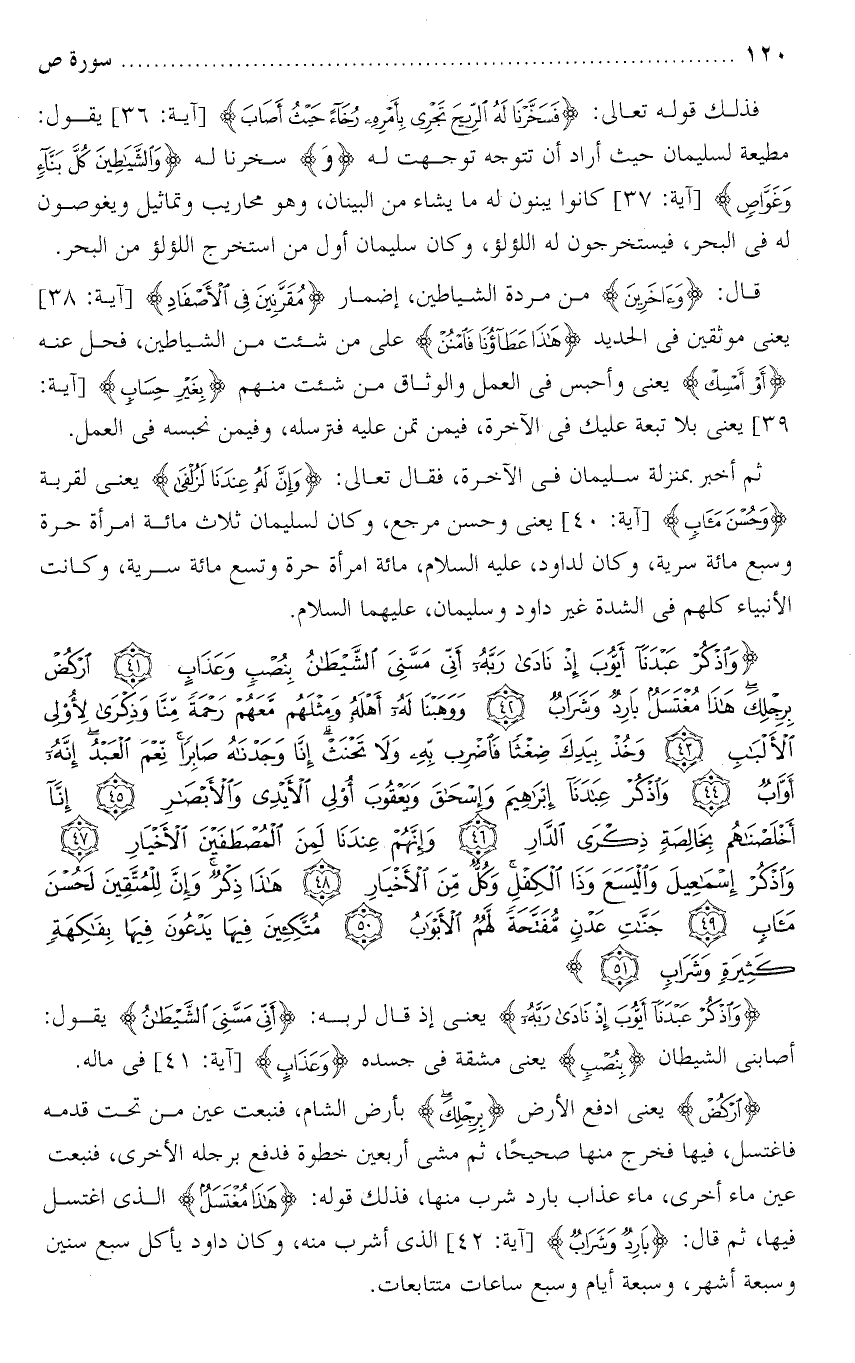 ١٢٠ ........................................................................ سورة ص
فذلك قوله تعالى: ﴿فَسَخَّرْنَا لَهُ ٱلرِّيحَ تَجْرِى بِأَمْرِهِۦ رُخَآءً حَيْثُ أَصَابَ﴾ [آية: ٣٦] يقول:
مطيعة لسليمان حيث أراد أن تتوجه توجهت له ﴿وَ﴾ سخرنا له ﴿وَٱلشَّيَٰطِينَ كُلَّ بَنَّآءٍ
وَغَوَّاصٍ﴾ [آية: ٣٧] كانوا يبنون له ما يشاء من البينان، وهو محاريب وتماثيل ويغوصون
له فى البحر، فيستخرجون له اللؤلؤ، وكان سليمان أول من استخرج اللؤلؤ من البحر.
قال: ﴿وَءَاخَرِينَ﴾ من مردة الشياطين، إضمار ﴿مُقَرَّنِينَ فِى ٱلْأَصْفَادِ﴾ [آية: ٣٨]
يعنى موثقين فى الحديد ﴿هَٰذَا عَطَآؤُنَا فَٱمْنُنْ﴾ على من شئت من الشياطين، فحل عنه
﴿أَوْ أَمْسِكْ﴾ يعنى وأحبس فى العمل والوثاق من شئت منهم ﴿بِغَيْرِ حِسَابٍ﴾ [آية:
٣٩] يعنى بلا تبعة عليك فى الآخرة، فيمن تمن عليه فترسله، وفيمن نحبسه فى العمل.
ثم أخبر بمنزلة سليمان فى الآخرة، فقال تعالى: ﴿وَإِنَّ لَهُۥ عِندَنَا لَزُلْفَىٰ﴾ يعنى لقربة
﴿وَحُسْنَ مَـَٔابٍ﴾ [آية: ٤٠] يعنى وحسن مرجع، وكان لسليمان ثلاث مائة امرأة حرة
وسبع مائة سرية، وكان لداود، عليه السلام، مائة امرأة حرة وتسع مائة سرية، وكانت
الأنبياء كلهم فى الشدة غير داود وسليمان، عليهما السلام.
﴿وَٱذْكُرْ عَبْدَنَآ أَيُّوبَ إِذْ نَادَىٰ رَبَّهُۥٓ أَنِّى مَسَّنِىَ ٱلشَّيْطَٰنُ بِنُصْبٍ وَعَذَابٍ ٤١ ٱرْكُضْ
بِرِجْلِكَ ۖ هَٰذَا مُغْتَسَلٌۢ بَارِدٌ وَشَرَابٌ ٤٢ وَوَهَبْنَا لَهُۥٓ أَهْلَهُۥ وَمِثْلَهُم مَّعَهُمْ رَحْمَةً مِّنَّا وَذِكْرَىٰ لِأُو۟لِى
ٱلْأَلْبَٰبِ ٤٣ وَخُذْ بِيَدِكَ ضِغْثًا فَٱضْرِب بِّهِۦ وَلَا تَحْنَثْ ۗ إِنَّا وَجَدْنَٰهُ صَابِرًا ۚ نِّعْمَ ٱلْعَبْدُ ۖ إِنَّهُۥٓ
أَوَّابٌ ٤٤ وَٱذْكُرْ عِبَٰدَنَآ إِبْرَٰهِيمَ وَإِسْحَٰقَ وَيَعْقُوبَ أُو۟لِى ٱلْأَيْدِى وَٱلْأَبْصَٰرِ ٤٥ إِنَّآ
أَخْلَصْنَٰهُم بِخَالِصَةٍ ذِكْرَى ٱلدَّارِ ٤٦ وَإِنَّهُمْ عِندَنَا لَمِنَ ٱلْمُصْطَفَيْنَ ٱلْأَخْيَارِ ٤٧
وَٱذْكُرْ إِسْمَٰعِيلَ وَٱلْيَسَعَ وَذَا ٱلْكِفْلِ ۖ وَكُلٌّ مِّنَ ٱلْأَخْيَارِ ٤٨ هَٰذَا ذِكْرٌ ۚ وَإِنَّ لِلْمُتَّقِينَ لَحُسْنَ
مَـَٔابٍ ٤٩ جَنَّٰتِ عَدْنٍ مُّفَتَّحَةً لَّهُمُ ٱلْأَبْوَٰبُ ٥٠ مُتَّكِـِٔينَ فِيهَا يَدْعُونَ فِيهَا بِفَٰكِهَةٍ
كَثِيرَةٍ وَشَرَابٍ ٥١﴾
﴿وَٱذْكُرْ عَبْدَنَآ أَيُّوبَ إِذْ نَادَىٰ رَبَّهُۥٓ﴾ يعنى إذ قال لربه: ﴿أَنِّى مَسَّنِىَ ٱلشَّيْطَٰنُ﴾ يقول:
أصابنى الشيطان ﴿بِنُصْبٍ﴾ يعنى مشقة فى جسده ﴿وَعَذَابٍ﴾ [آية: ٤١] فى ماله.
﴿ٱرْكُضْ﴾ يعنى ادفع الأرض ﴿بِرِجْلِكَ ۖ﴾ بأرض الشام، فنبعت عين من تحت قدمه
فاغتسل، فيها فخرج منها صحيحًا، ثم مشى أربعين خطوة فدفع برجله الأخرى، فنبعت
عين ماء أخرى، ماء عذاب بارد شرب منها، فذلك قوله: ﴿هَٰذَا مُغْتَسَلٌۢ﴾ الذى اغتسل
فيها، ثم قال: ﴿بَارِدٌ وَشَرَابٌ﴾ [آية: ٤٢] الذى أشرب منه، وكان داود يأكل سبع سنين
وسبعة أشهر، وسبعة أيام وسبع ساعات متتابعات.